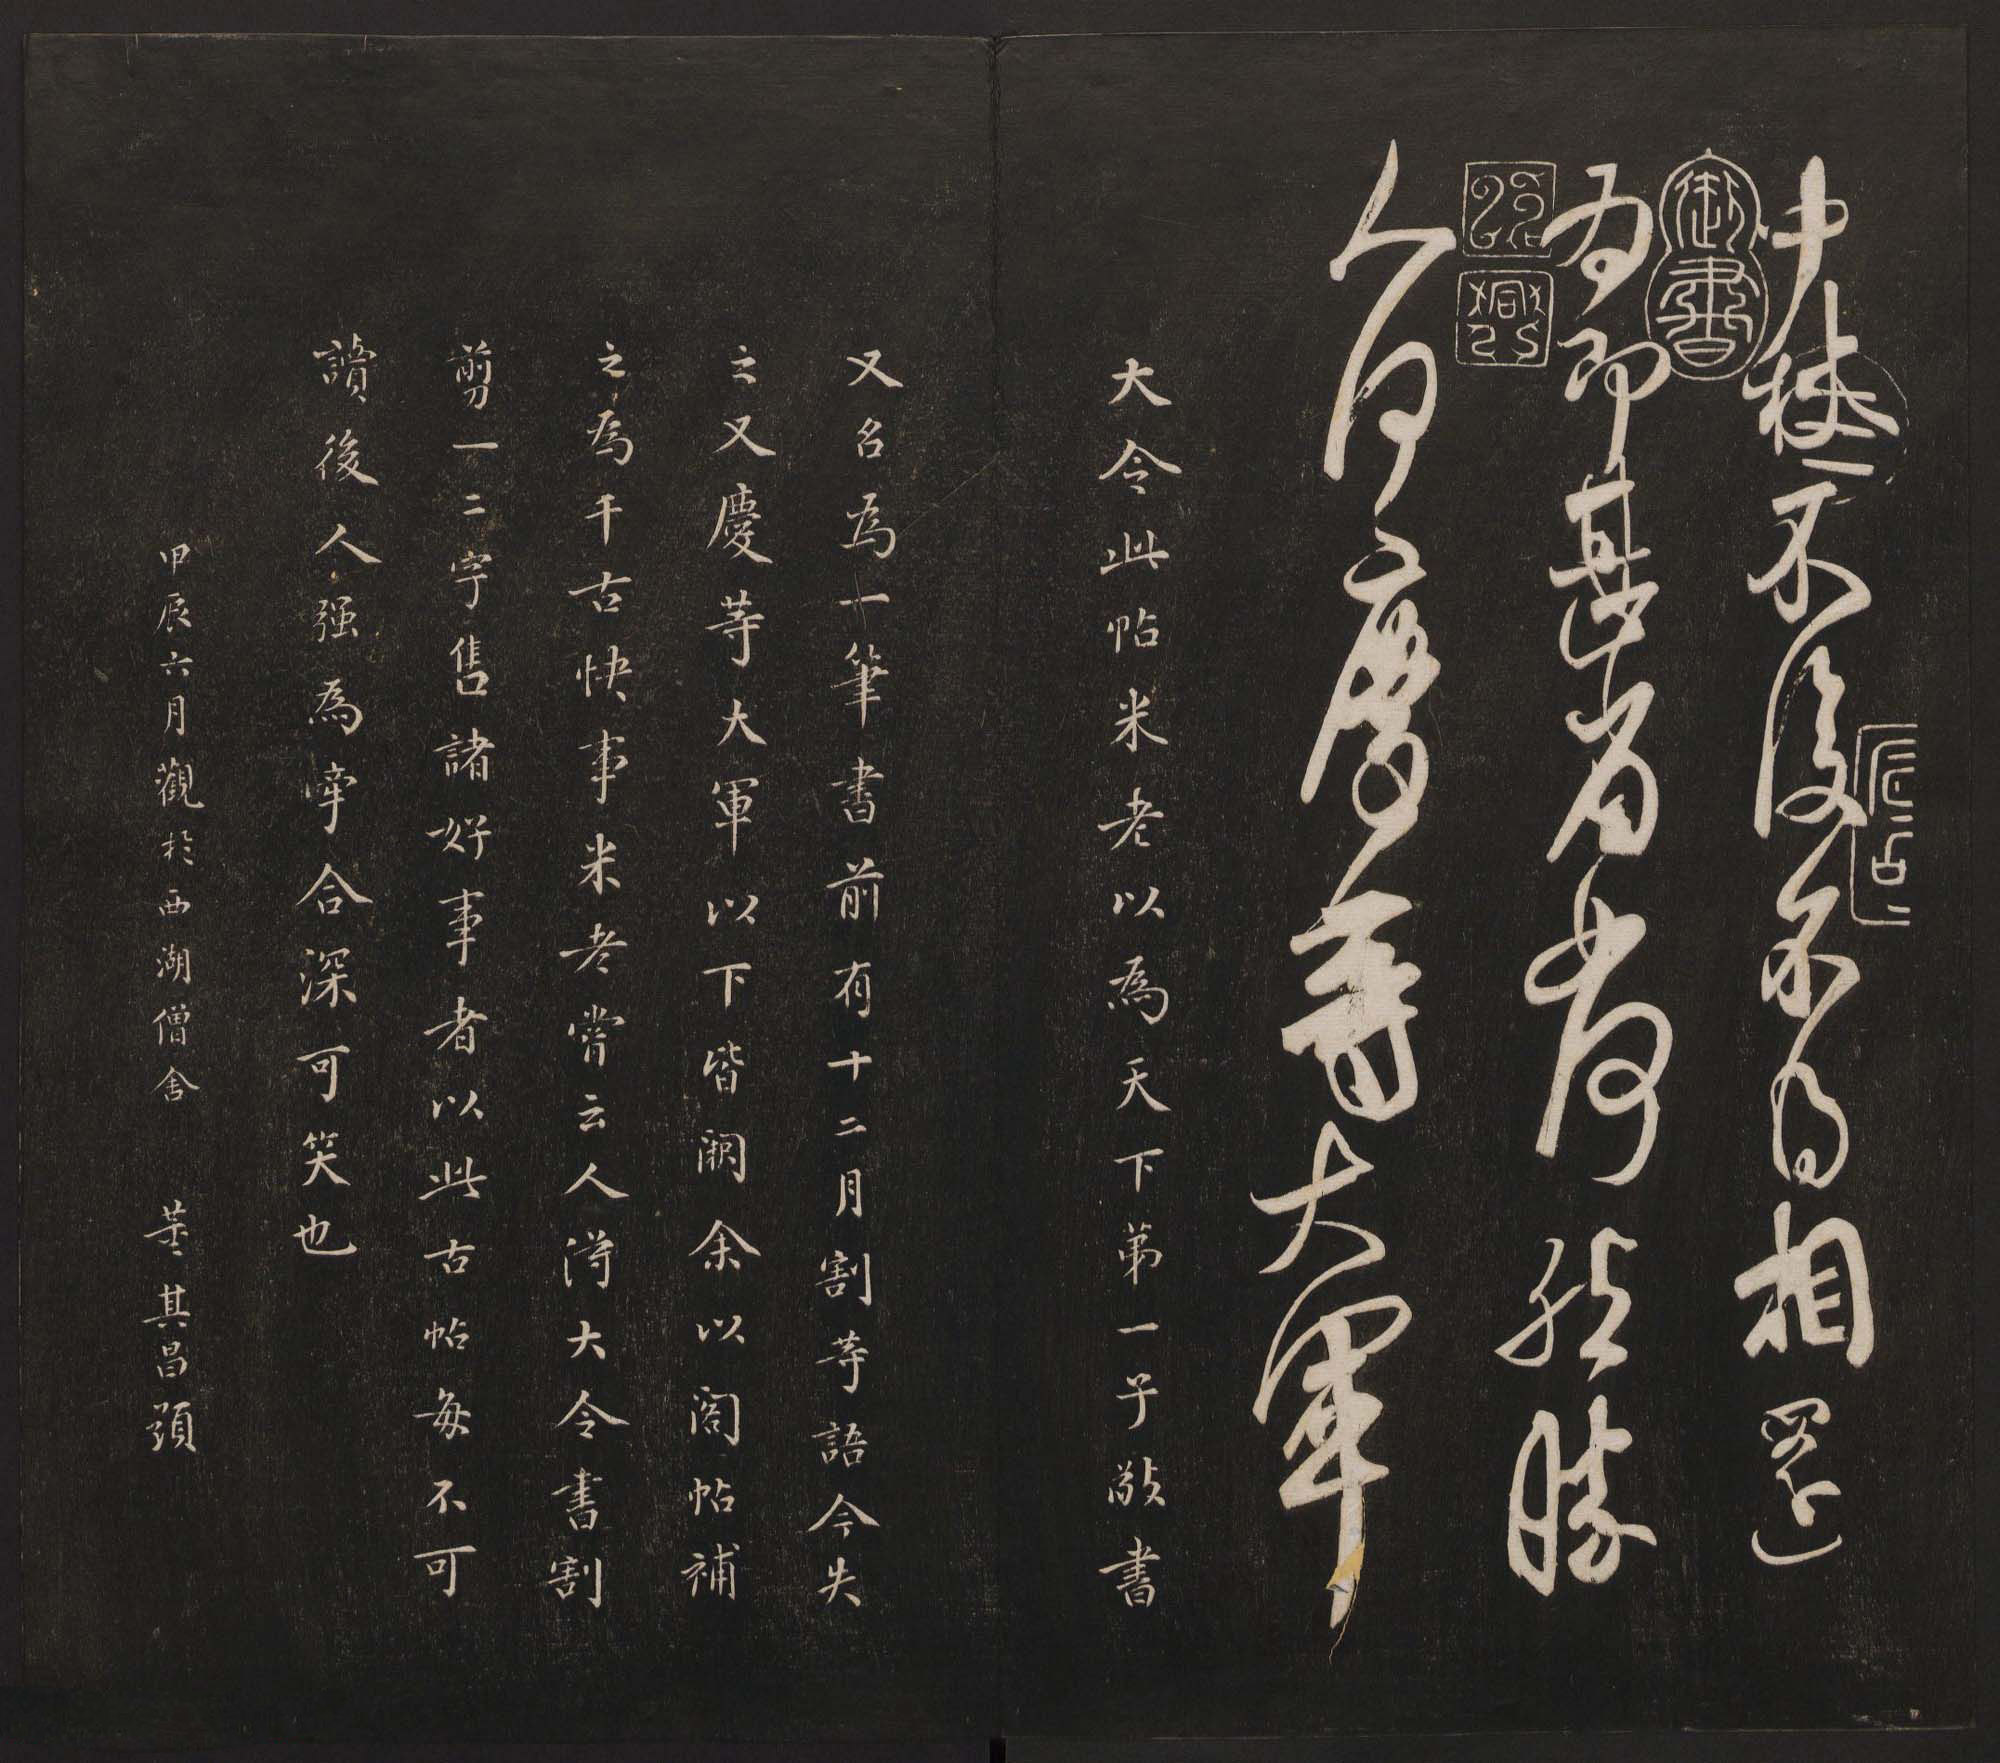 中秋不復不得相還
為即甚省如何然勝
人何慶等大軍
御書
大令此帖米老以為天下第一子敬書
又名為一筆書前有十二月割等語今失
之又慶等大軍以下皆闕余以閣帖補
之為千古快事米老嘗云人得大令書割
剪一二字售諸好事者以此古帖每不可
讀後人強為牽合深可笑也
甲辰六月觀於西湖僧舍 董其昌題